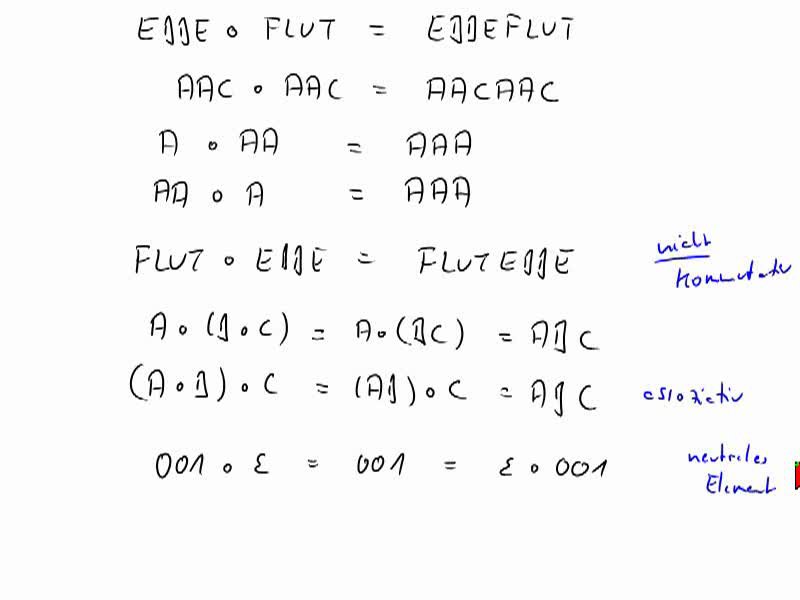 EBBE ∘ FLUT = EBBEFLUT
AAC ∘ AAC = AACAAC
A ∘ AA = AAA
AA ∘ A = AAA
FLUT ∘ EBBE = FLUTEBBE
nicht
kommutativ
A ∘ (B ∘ C) = A ∘ (BC) = ABC
(A ∘ B) ∘ C = (AB) ∘ C = ABC
assoziativ
001 ∘ ε = 001 = ε ∘ 001
neutrales
Element